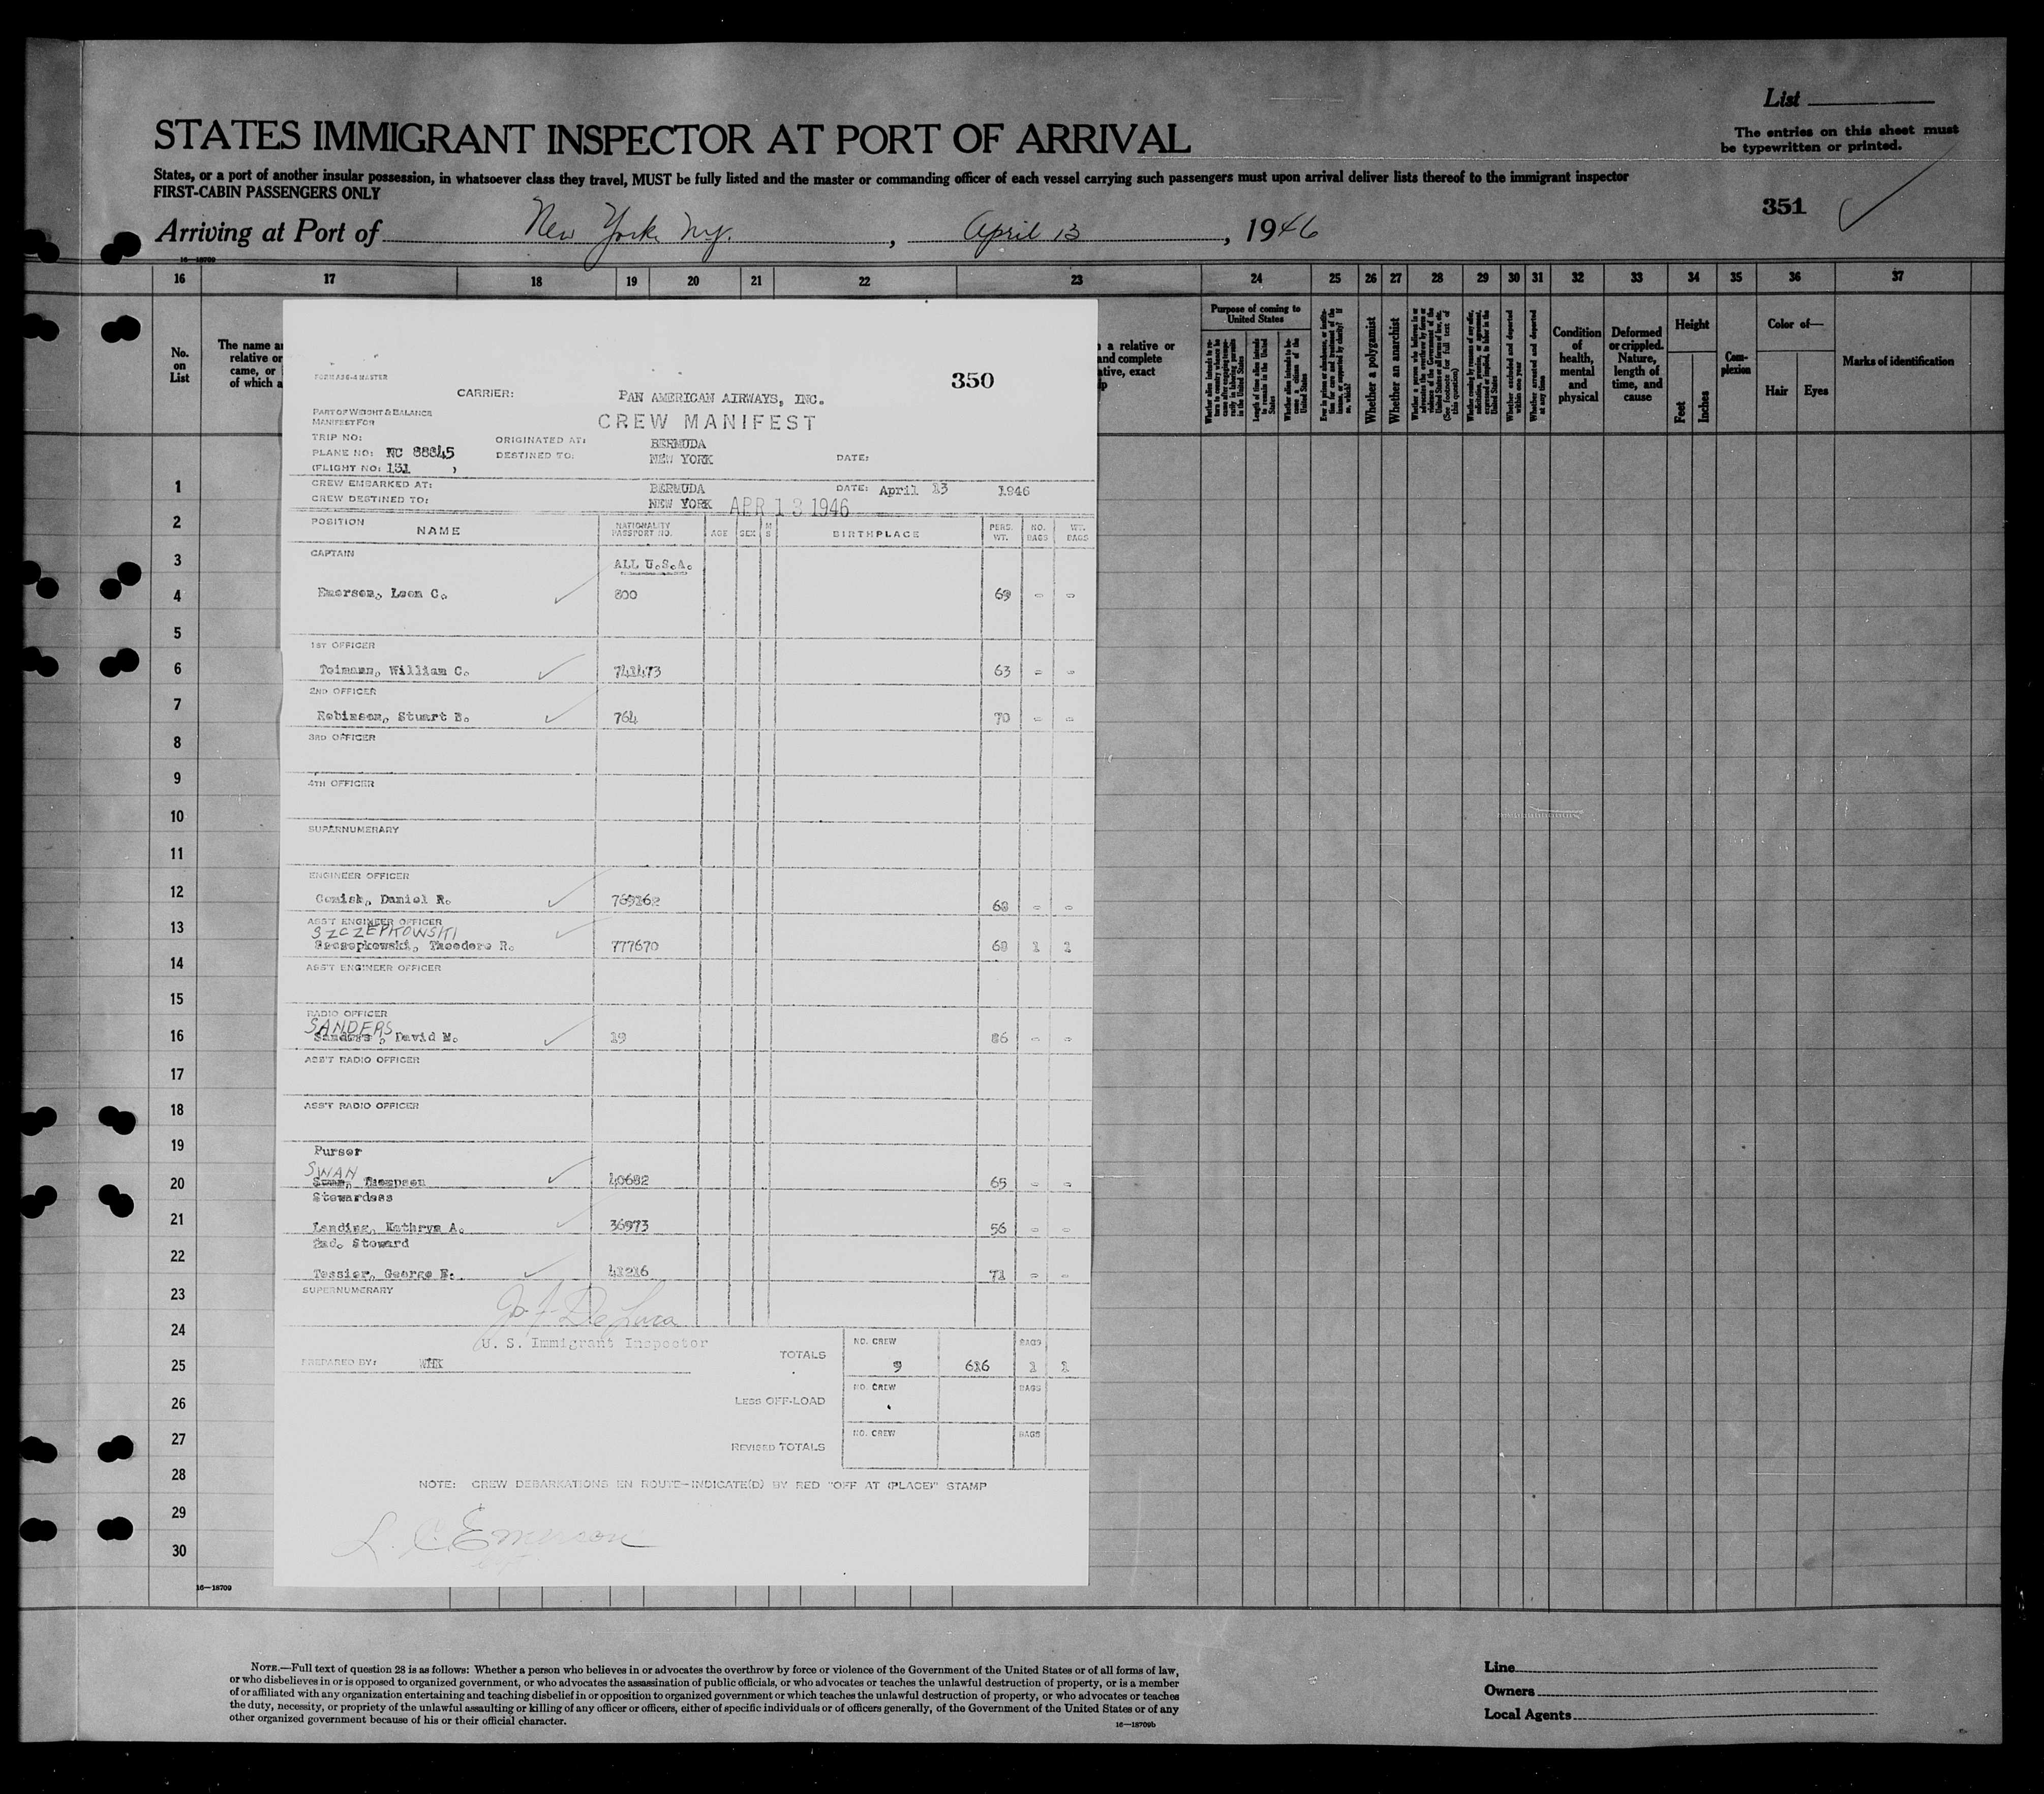 List
STATES IMMIGRANT INSPECTOR AT PORT OF ARRIVAL
The entries on this sheet must
be typewritten or printed.
States, or a port of another insular possession, in whatsoever class they travel, MUST be fully listed and the master or commanding officer of each vessel carrying such passengers must upon arrival deliver lists thereof to the immigrant inspector
FIRST-CABIN PASSENGERS ONLY
351
Arriving at Port of New York Ny. , April 13 , 1946
16—18709
16 17 18 19 20 21 22 23 24 25 26 27 28 29 30 31 32 33 34 35 36 37
No.
on
List
The name a
relative or
came, or
of which a
a relative or
and complete
ative, exact
p
Purpose of coming to
United States
Whether a polygamist
Whether an anarchist
Condition
of
health,
mental
and
physical
Deformed
or crippled.
Nature,
length of
time, and
cause
Height
Feet
Inches
Com-
plexion
Color of—
Hair
Eyes
Marks of identification
350
CARRIER: PAN AMERICAN AIRWAYS, INC.
PART OF WEIGHT & BALANCE
MANIFEST FOR
CREW MANIFEST
TRIP NO: ORIGINATED AT: BERMUDA
PLANE NO: NC 88845 DESTINED TO: NEW YORK DATE:
(FLIGHT NO: 131 )
CREW EMBARKED AT: BERMUDA DATE: April 13 1946
CREW DESTINED TO: NEW YORK APR 13 1946
POSITION NAME NATIONALITY PASSPORT NO. AGE SEX M S BIRTHPLACE PERS. WT. NO. BAGS WT. BAGS
CAPTAIN
ALL U.S.A.
Emerson, Leon C. 800 69 - -
1ST OFFICER
Toimann, William C. 741473 63 - -
2ND OFFICER
Robinson, Stuart B. 764 70 - -
3RD OFFICER
4TH OFFICER
SUPERNUMERARY
ENGINEER OFFICER
Comish, Daniel R. 769162 68 - -
ASS'T ENGINEER OFFICER
SZCZEPKOWSKI
Szczepkowski, Theodore R. 777670 68 1 1
ASS'T ENGINEER OFFICER
RADIO OFFICER
SANDERS
Sanders, David M. 19 86 - -
ASS'T RADIO OFFICER
ASS'T RADIO OFFICER
Purser
SWAN
Swan, Thompson 40682 65 - -
Stewardess
Landing, Kathryn A. 36973 56 - -
2nd. Steward
Tessier, George E. 41216 71 - -
SUPERNUMERARY
U. S. Immigrant Inspector
PREPARED BY: WHK
TOTALS NO. CREW 9 616 BAGS 1 1
LESS OFF-LOAD NO. CREW BAGS
REVISED TOTALS NO. CREW BAGS
NOTE: CREW DEBARKATIONS EN ROUTE—INDICATE(D) BY RED "OFF AT (PLACE)" STAMP
L. C. Emerson
1
2
3
4
5
6
7
8
9
10
11
12
13
14
15
16
17
18
19
20
21
22
23
24
25
26
27
28
29
30
16—18709
NOTE.—Full text of question 28 is as follows: Whether a person who believes in or advocates the overthrow by force or violence of the Government of the United States or of all forms of law,
or who disbelieves in or is opposed to organized government, or who advocates the assassination of public officials, or who advocates or teaches the unlawful destruction of property, or is a member
of or affiliated with any organization entertaining and teaching disbelief in or opposition to organized government or which teaches the unlawful destruction of property, or who advocates or teaches
the duty, necessity, or propriety of the unlawful assaulting or killing of any officer or officers, either of specific individuals or of officers generally, of the Government of the United States or of any
other organized government because of his or their official character.
16—18709b
Line
Owners
Local Agents